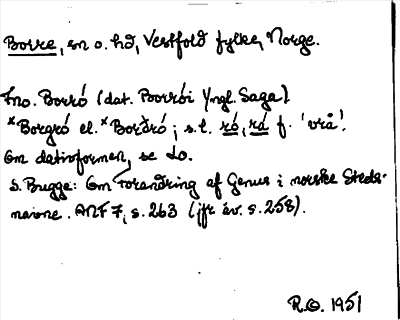 Borre, sn o. hd, Vestfold fylke, Norge.
Fno. Borró (dat. Borrói Yngl. Saga).
*Borgró el. *Borðró; s.l. ró, rá f. 'vrå'.
Om dativformen, se Lo.
S. Bugge: Om Forandring af Genus i norske Steds-
navne. ANF 7, s. 263 (jfr äv. s. 258).
R.O. 1951